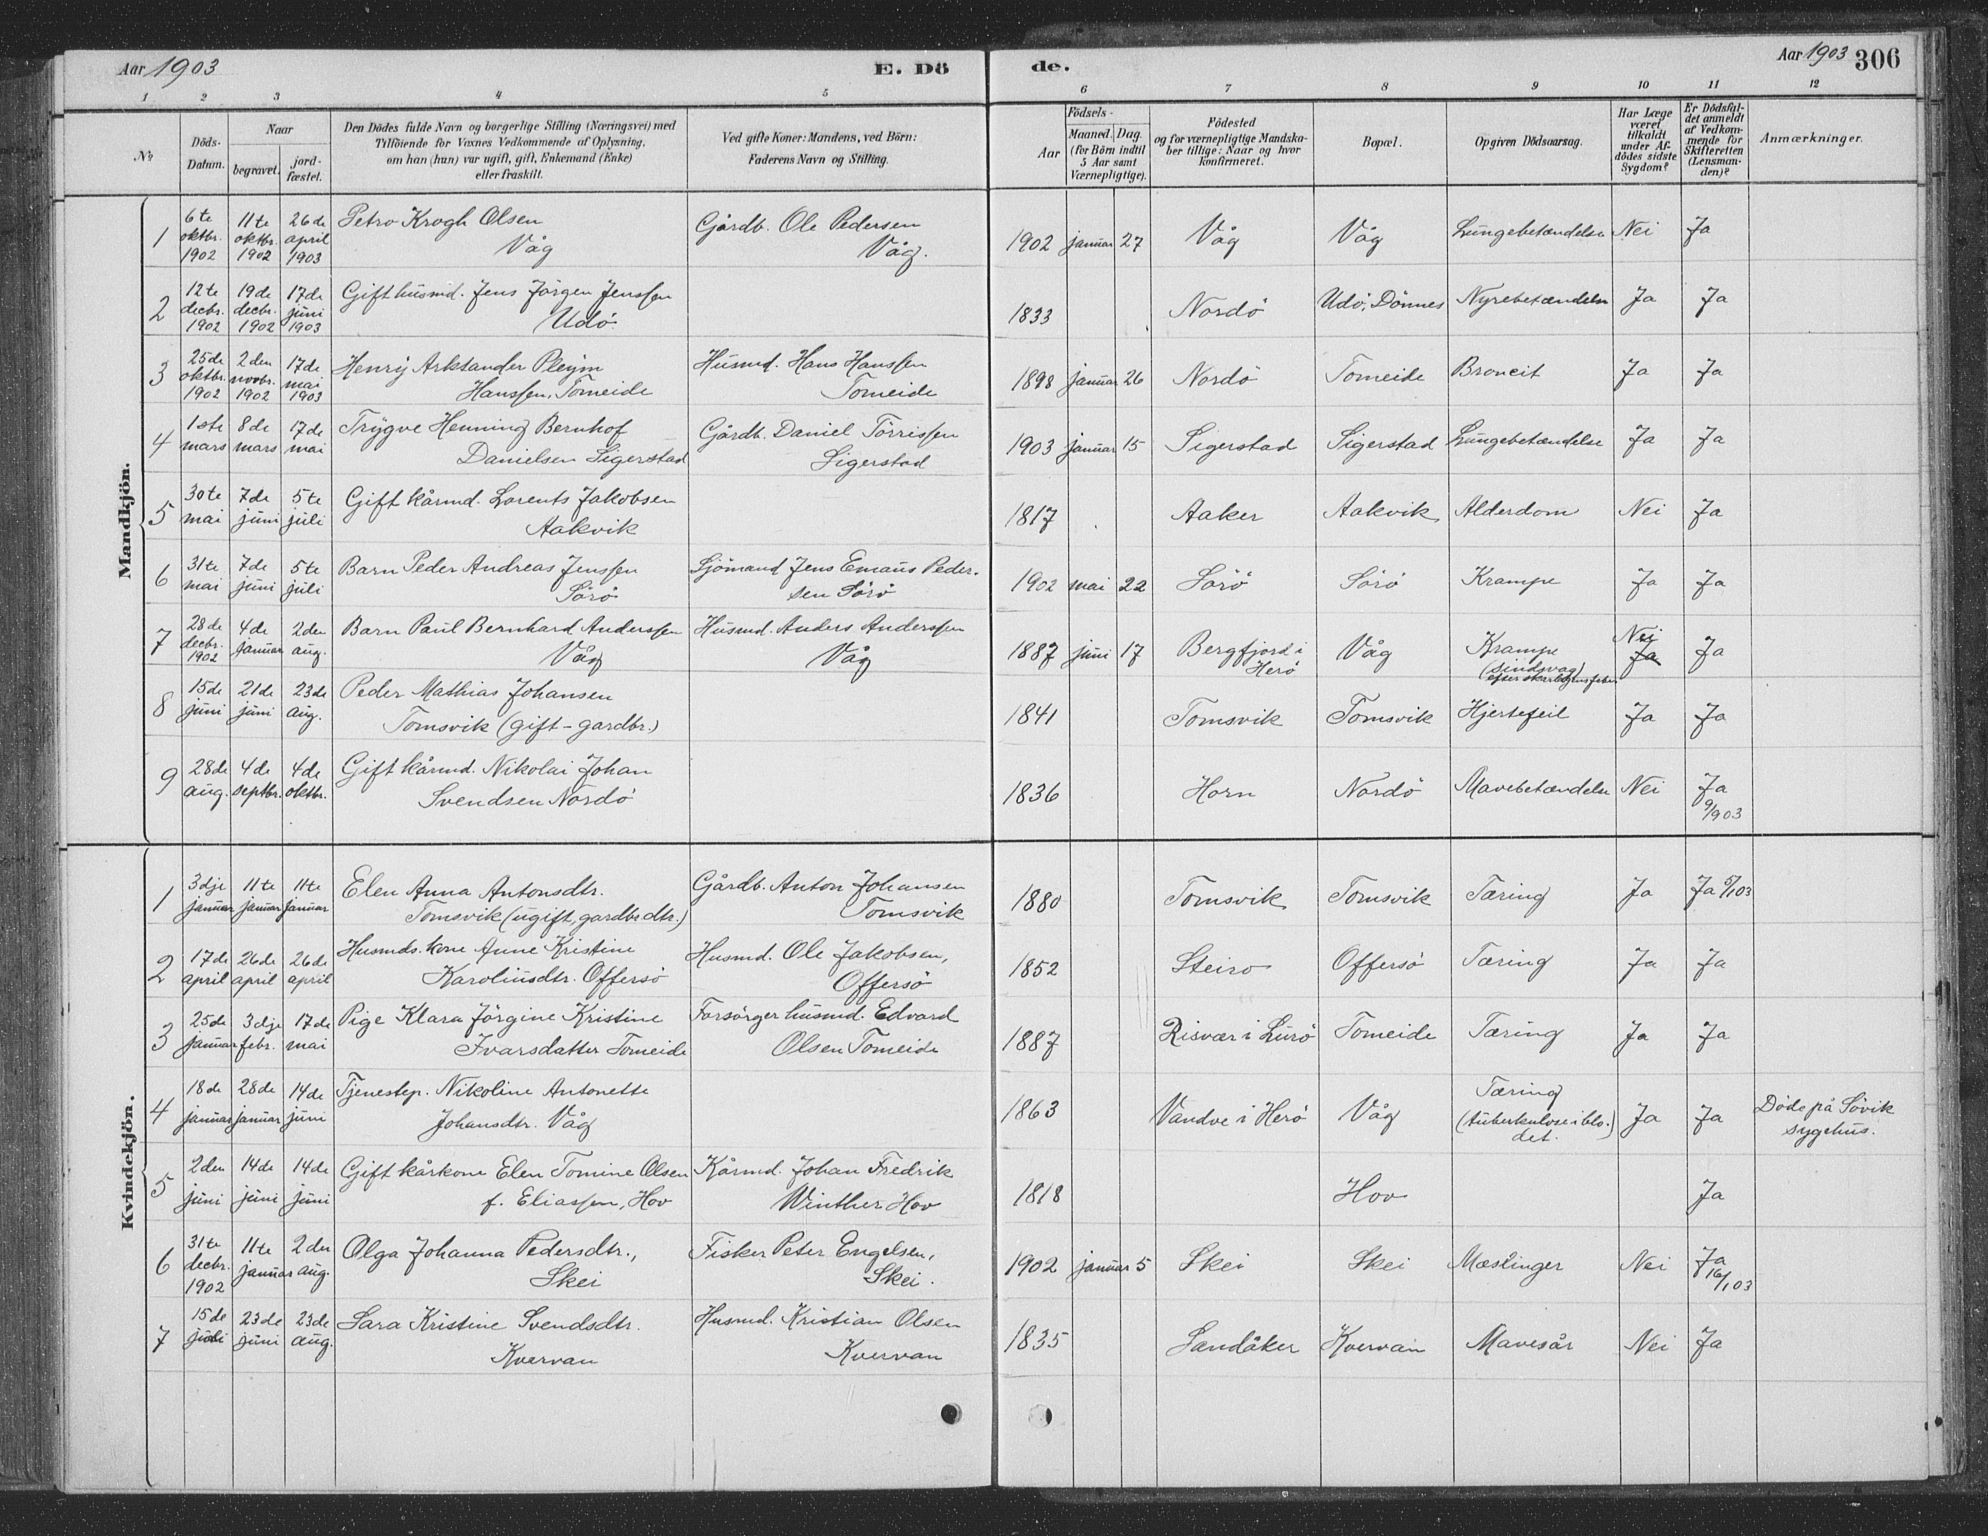 Aar 1903 E. Dö de. Aar 1903 306
1 2 3 4 5 6 7 8 9 10 11 12
No
Döds-Datum.
Naar
begravet.
jord-fæstet.
Den Dödes fulde Navn og borgerlige Stilling (Næringsvei) med
Tilföiende for Voxnes Vedkommende af Oplysning,
om han (hun) var ugift, gift, Enkemand (Enke)
eller fraskilt.
Ved gifte Koner: Mandens, ved Börn:
Faderens Navn og Stilling.
Födsels-
Aar
Maaned. Dag.
(for Börn indtil
5 Aar samt
Værnepligtige).
Födested
og for værnepligtige Mandska-
ber tillige: Naar og hvor
konfirmeret.
Bopæl.
Opgiven Dödsaarsag.
Har Læge
været
tilkaldt
under Af-
dödes sidste
Sygdom?
Er Dödsfal-
det anmeldt
af Vedkom-
mende for
Skifteretten
(Lensman-
den)?
Anmærkninger.
Mandkjön.
1 6te oktbr. 1902 11te oktbr. 1902 26de april 1903 Petro Krogh Olsen Våg Gårdb. Ole Pedersen Våg. 1902 januar 27 Våg Våg Lungebetændelse Nei Ja
2 12te decbr. 1902 19de decbr. 1902 17de juni 1903 Gift husmd. Jens Jörgen Jenssen Udö 1833 Nordö Udö, Dönnes Nyrebetændelse Ja Ja
3 25de oktbr. 1902 2den novbr. 1902 17de mai 1903 Henrij Arktander Pleym Hanssen, Tomeide Husmd. Hans Hanssen Tomeide 1898 januar 26 Nordö Tomeide Broncit Ja Ja
4 1ste mars 8de mars 17de mai Trygve Henning Bernhof Danielsen Sigerstad Gårdb. Daniel Törrissen Sigerstad 1903 januar 15 Sigerstad Sigerstad Lungebetændelse Ja Ja
5 30te mai 7de juni 5te juli Gift kårmd. Lorents Jakobsen Aakvik 1817 Aaker Aakvik Alderdom Nei Ja
6 31te mai 7de juni 5te juli Barn Peder Andreas Jenssen Sörö Sjömand Jens Emaus Peder-sen Sörö 1902 mai 22 Sörö Sörö Krampe Ja Ja
7 28de decbr. 1902 4de januar 2den aug. Barn Paul Bernhard Anderssen Våg Husmd. Anders Anderssen Våg 1887 juni 17 Bergfjord i Herö Våg Krampe (sindsvag) Nei Ja Ja
8 15de juni 21de juni 23de aug. Peder Mathias Johansen Tomsvik (gift - gardbr.) 1841 Tomsvik Tomsvik Hjertefeil Ja Ja
9 28de aug. 4de septbr. 4de oktbr. Gift kårmd. Nikolai Johan Svendsen Nordö 1836 Horn Nordö Mavebetændelse Nei Ja 9/9 03
Kvindekjön.
1 3dje januar 11te januar 11te januar Elen Anna Antonsdtr. Tomsvik (ugift, gardbr.dtr.) Gårdb. Anton Johansen Tomsvik 1880 Tomsvik Tomsvik Tæring Ja Ja 5/1 03
2 17de april 26de april 26de april Husmds. kone Anne Kristine Karoliusdtr. Offersö Husmd. Ole Jakobsen, Offersö 1852 Steiro Offersö Tæring Ja Ja
3 25de januar 3dje febr. 17de mai Pige Klara Jörgine Kristine Ivarsdatter Tomeide Forsörger husmd. Edvard Olsen Tomeide 1887 Risvær i Lurö Tomeide Tæring Ja Ja
4 18de januar 28de januar 14de juni Tjenestep. Nikoline Antonette Johansdtr. Våg 1863 Vandve i Herö Våg Tæring (tuberkulose i blo-det.) Ja Ja Döde på Sövik sygehus.
5 2den juni 14de juni 14de juni Gift kårkone Elen Tomine Olsen f. Eliassen, Hov Kårmd. Johan Fredrik Winther Hov 1818 Hov Ja
6 31te decbr. 1902 11te januar 2den aug. Olga Johanna Pedersdtr., Skei Fisker Peter Engelsen, Skei. 1902 januar 5 Skei Skei Mæslinger Nei Ja 16/1 03
7 15de juni 23de juni 23de aug. Sara Kristine Svendsdtr. Kvervan Husmd. Kristian Olsen Kvervan 1835 Sandåker Kvervan Mavesår Nei Ja